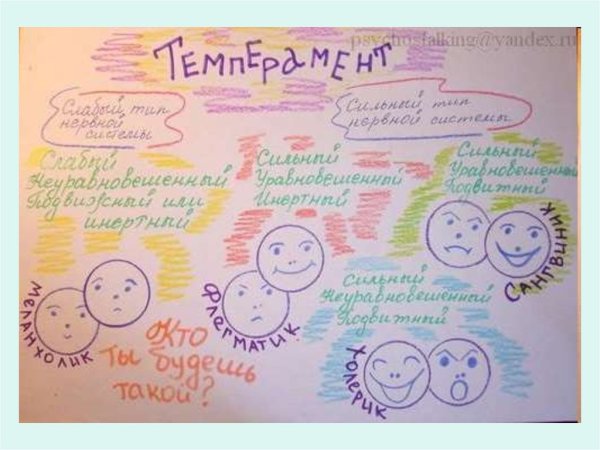 psychostalking@yandex.ru
Темперамент
Слабый тип
нервной
системы
Сильный тип
нервной системы
Слабый
Неуравновешенный
Подвижный или
инертный
Сильный
Уравновешенный
Инертный
Сильный
Уравновешенный
Подвижный
Меланхолик
Флегматик
Сангвиник
Сильный
Неуравновешенный
Подвижный
Холерик
Кто
ты будешь
такой?